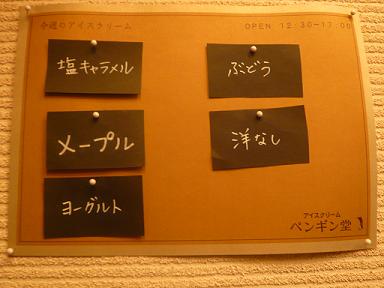 今週のアイスクリーム
OPEN 12:30-17:00
塩キャラメル
ぶどう
メープル
洋なし
ヨーグルト
アイスクリーム
ペンギン堂